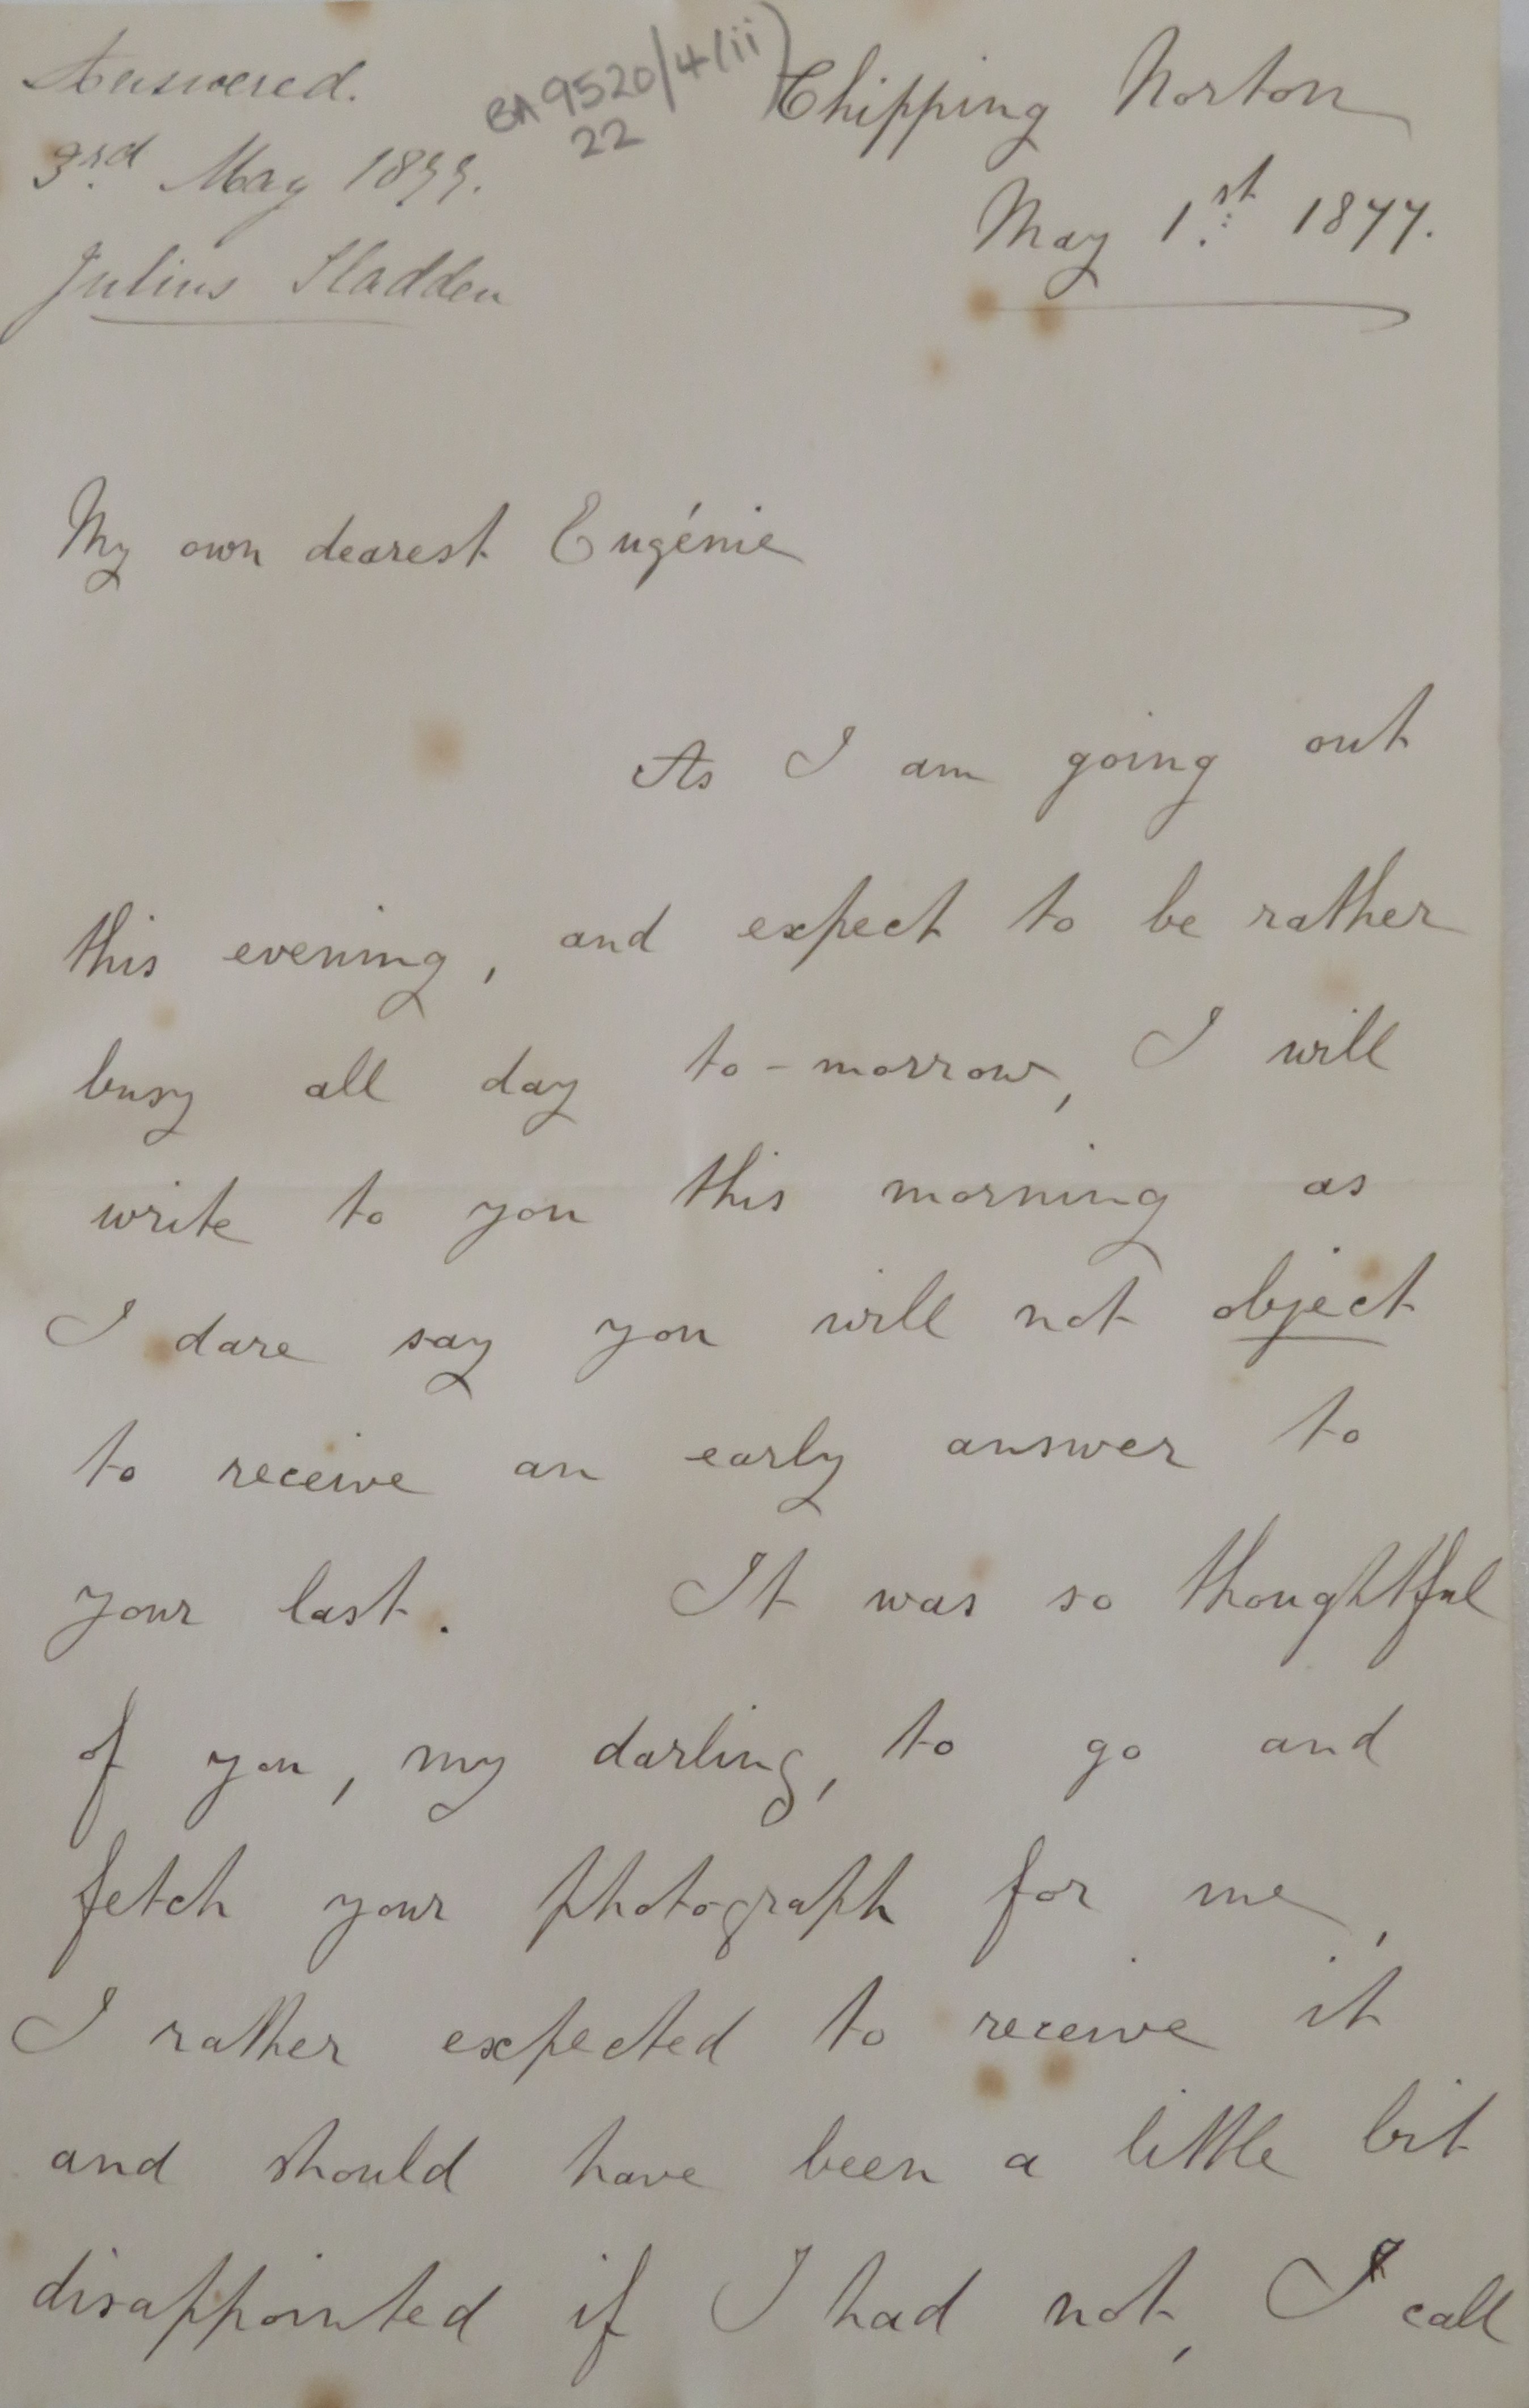 Answered.
3rd May 1877.
Julius Sladden
BA 9520/4(ii)
22
Chipping Norton
May 1st 1877.
My own dearest Eugénie
As I am going out
this evening, and expect to be rather
busy all day to-morrow, I will
write to you this morning as
I dare say you will not object
to receive an early answer to
your last. It was so thoughtful
of you, my darling, to go and
fetch your photograph for me,
I rather expected to receive it
and should have been a little bit
disappointed if I had not, I call